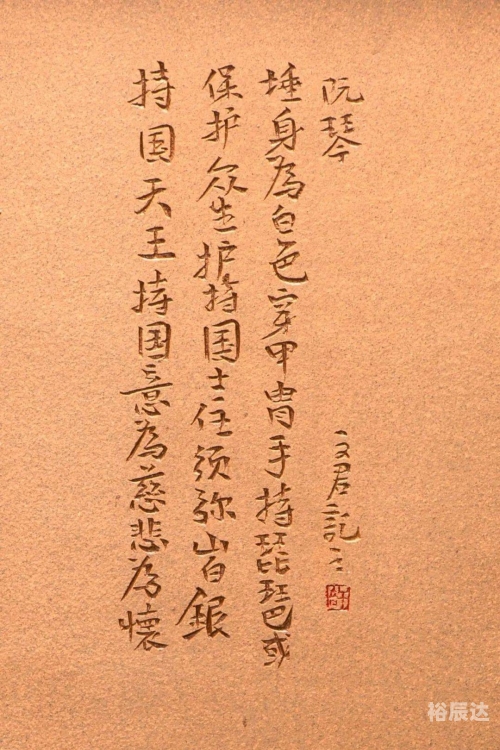 持国天王持国意為慈悲为懷
保护众生护持国士任须弥山白銀
埵身為白色穿甲冑手持琵琶或
阮琴
文君記之
裕辰达